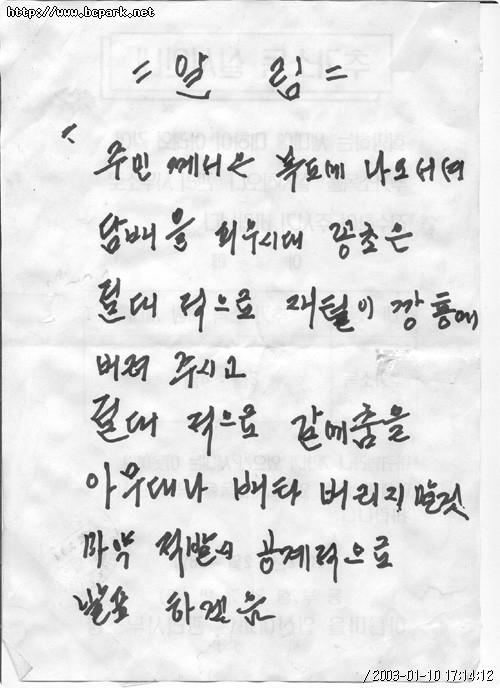 http://www.bcpark.net
= 알 림 =
주민 께서는 복도에 나오서며
담배을 피우시대 꽁초은
절대 적으로 재털이 깡통에
버려 주시고
절대 적으로 갈에춤을
아무대나 배타 버리지 말것
마약 적발시 공계적으로
발표 하겐음
/2003-01-10 17:14:12